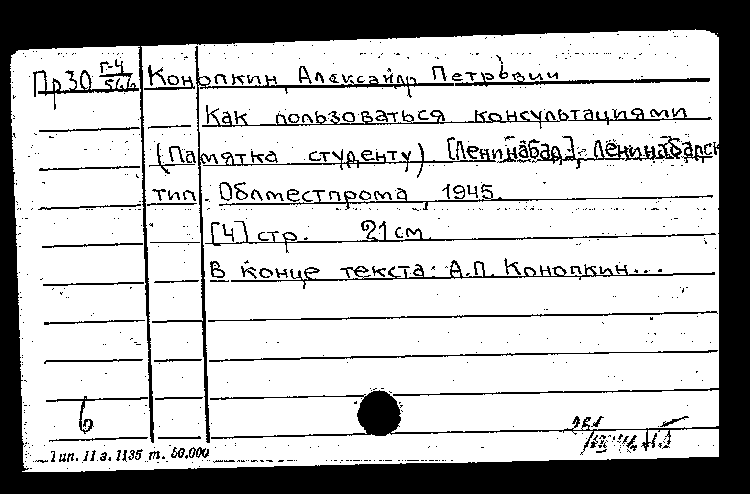 Пр30 г-4/566 Конопкин, Александр Петрович
Как пользоваться консультациями
(Памятка студенту) [Ленинабад], Ленинабадск
тип. Облместпрома, 1945.
[4] стр. 21 см.
В конце текста: А.П. Конопкин...
6
Тип. 11 з. 1135 т. 50.000